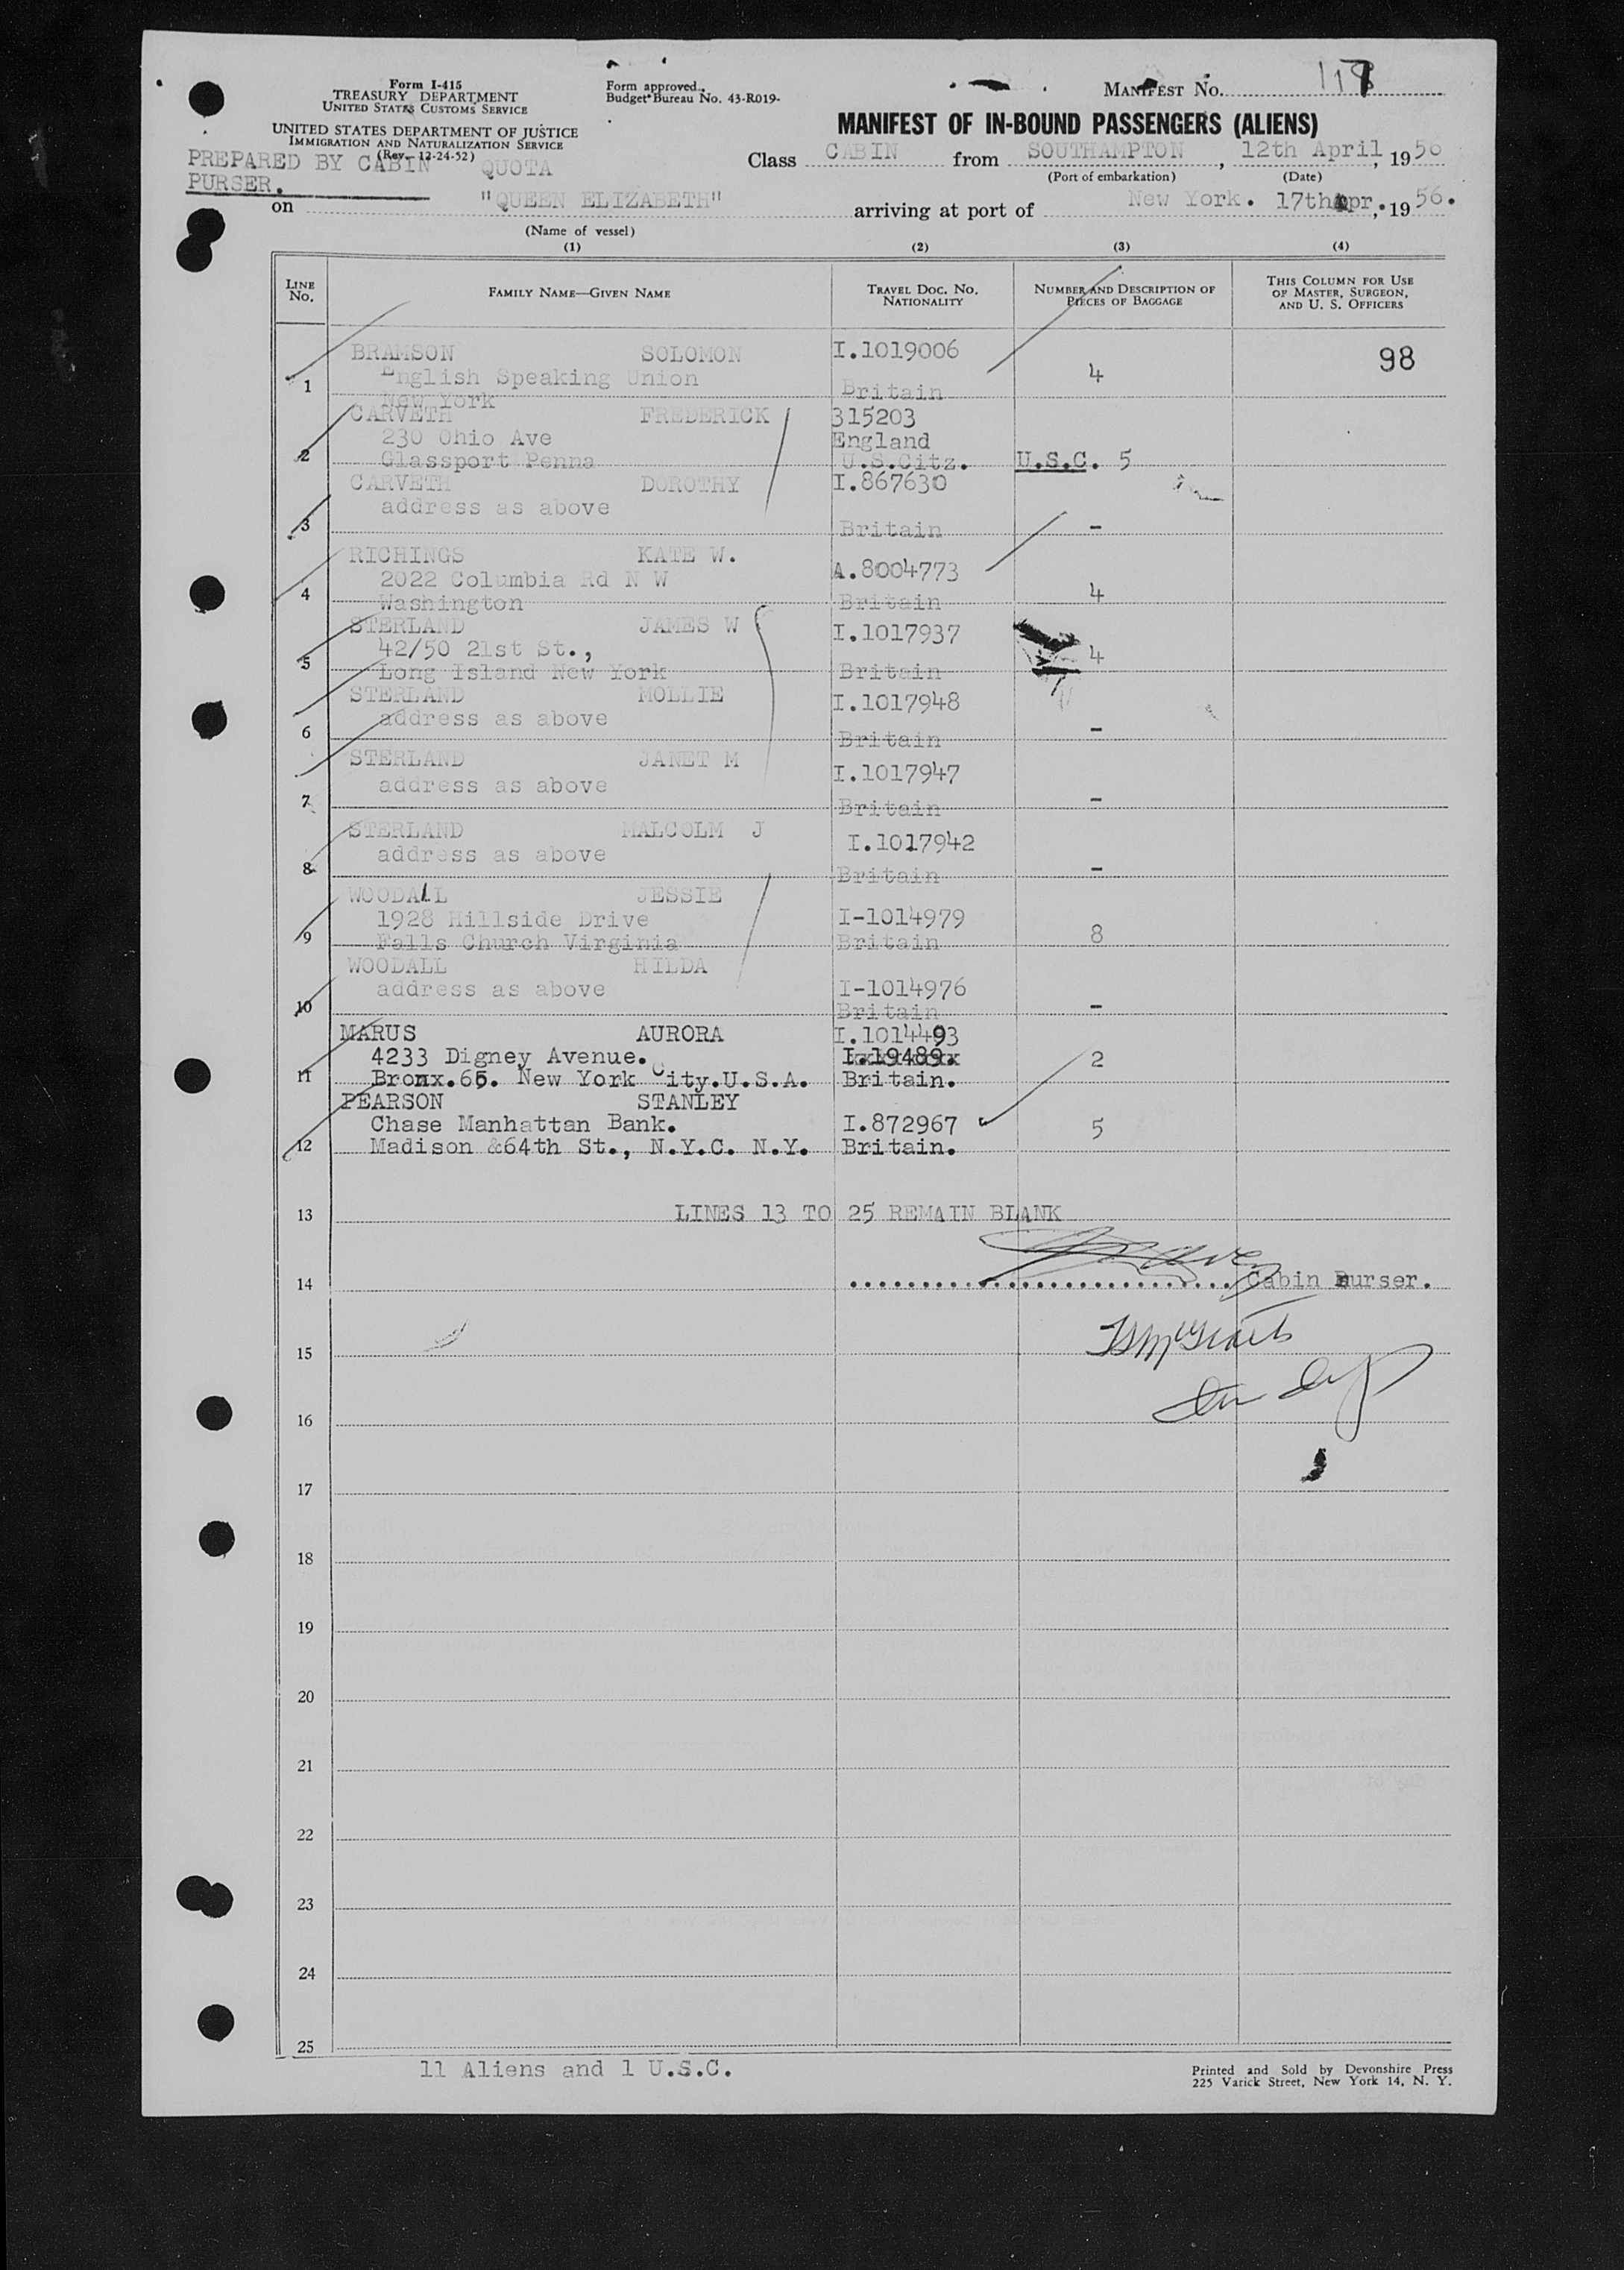 Form I-415
TREASURY DEPARTMENT
UNITED STATES CUSTOMS SERVICE
UNITED STATES DEPARTMENT OF JUSTICE
IMMIGRATION AND NATURALIZATION SERVICE
(Rev. 12-24-52)
Form approved.
Budget Bureau No. 43-R019-
MANIFEST No. 117
MANIFEST OF IN-BOUND PASSENGERS (ALIENS)
PREPARED BY CABIN PURSER.
QUOTA
Class CABIN from SOUTHAMPTON, 12th April, 1956
(Port of embarkation) (Date)
on "QUEEN ELIZABETH" arriving at port of New York. 17th Apr., 1956.
(Name of vessel)
(1) (2) (3) (4)
LINE No. FAMILY NAME—GIVEN NAME TRAVEL DOC. No. NATIONALITY NUMBER AND DESCRIPTION OF PIECES OF BAGGAGE THIS COLUMN FOR USE OF MASTER, SURGEON, AND U. S. OFFICERS
BRAMSON SOLOMON I.1019006 98
English Speaking Union 4
1 New York Britain
CARVETH FREDERICK 315203
230 Ohio Ave England
2 Glassport Penna U.S.Citz. U.S.C. 5
CARVETH DOROTHY I.867630
address as above
3 Britain -
RICHINGS KATE W. A.8004773
2022 Columbia Rd N W
4 Washington Britain 4
STERLAND JAMES W I.1017937
42/50 21st St.,
5 Long Island New York Britain 4
STERLAND MOLLIE I.1017948
address as above
6 Britain -
STERLAND JANET M I.1017947
address as above
7 Britain -
STERLAND MALCOLM J I.1017942
address as above
8 Britain -
WOODALL JESSIE
1928 Hillside Drive I-1014979
9 Falls Church Virginia Britain 8
WOODALL HILDA
address as above I-1014976
10 Britain -
MARUS AURORA I.1014493
4233 Digney Avenue. I.19489. 2
11 Bronx.66. New York City.U.S.A. Britain.
PEARSON STANLEY
Chase Manhattan Bank. I.872967 5
12 Madison &64th St., N.Y.C. N.Y. Britain.
13 LINES 13 TO 25 REMAIN BLANK
14 Cabin Purser.
15
16
17
18
19
20
21
22
23
24
25
11 Aliens and 1 U.S.C.
Printed and Sold by Devonshire Press
225 Varick Street, New York 14, N. Y.